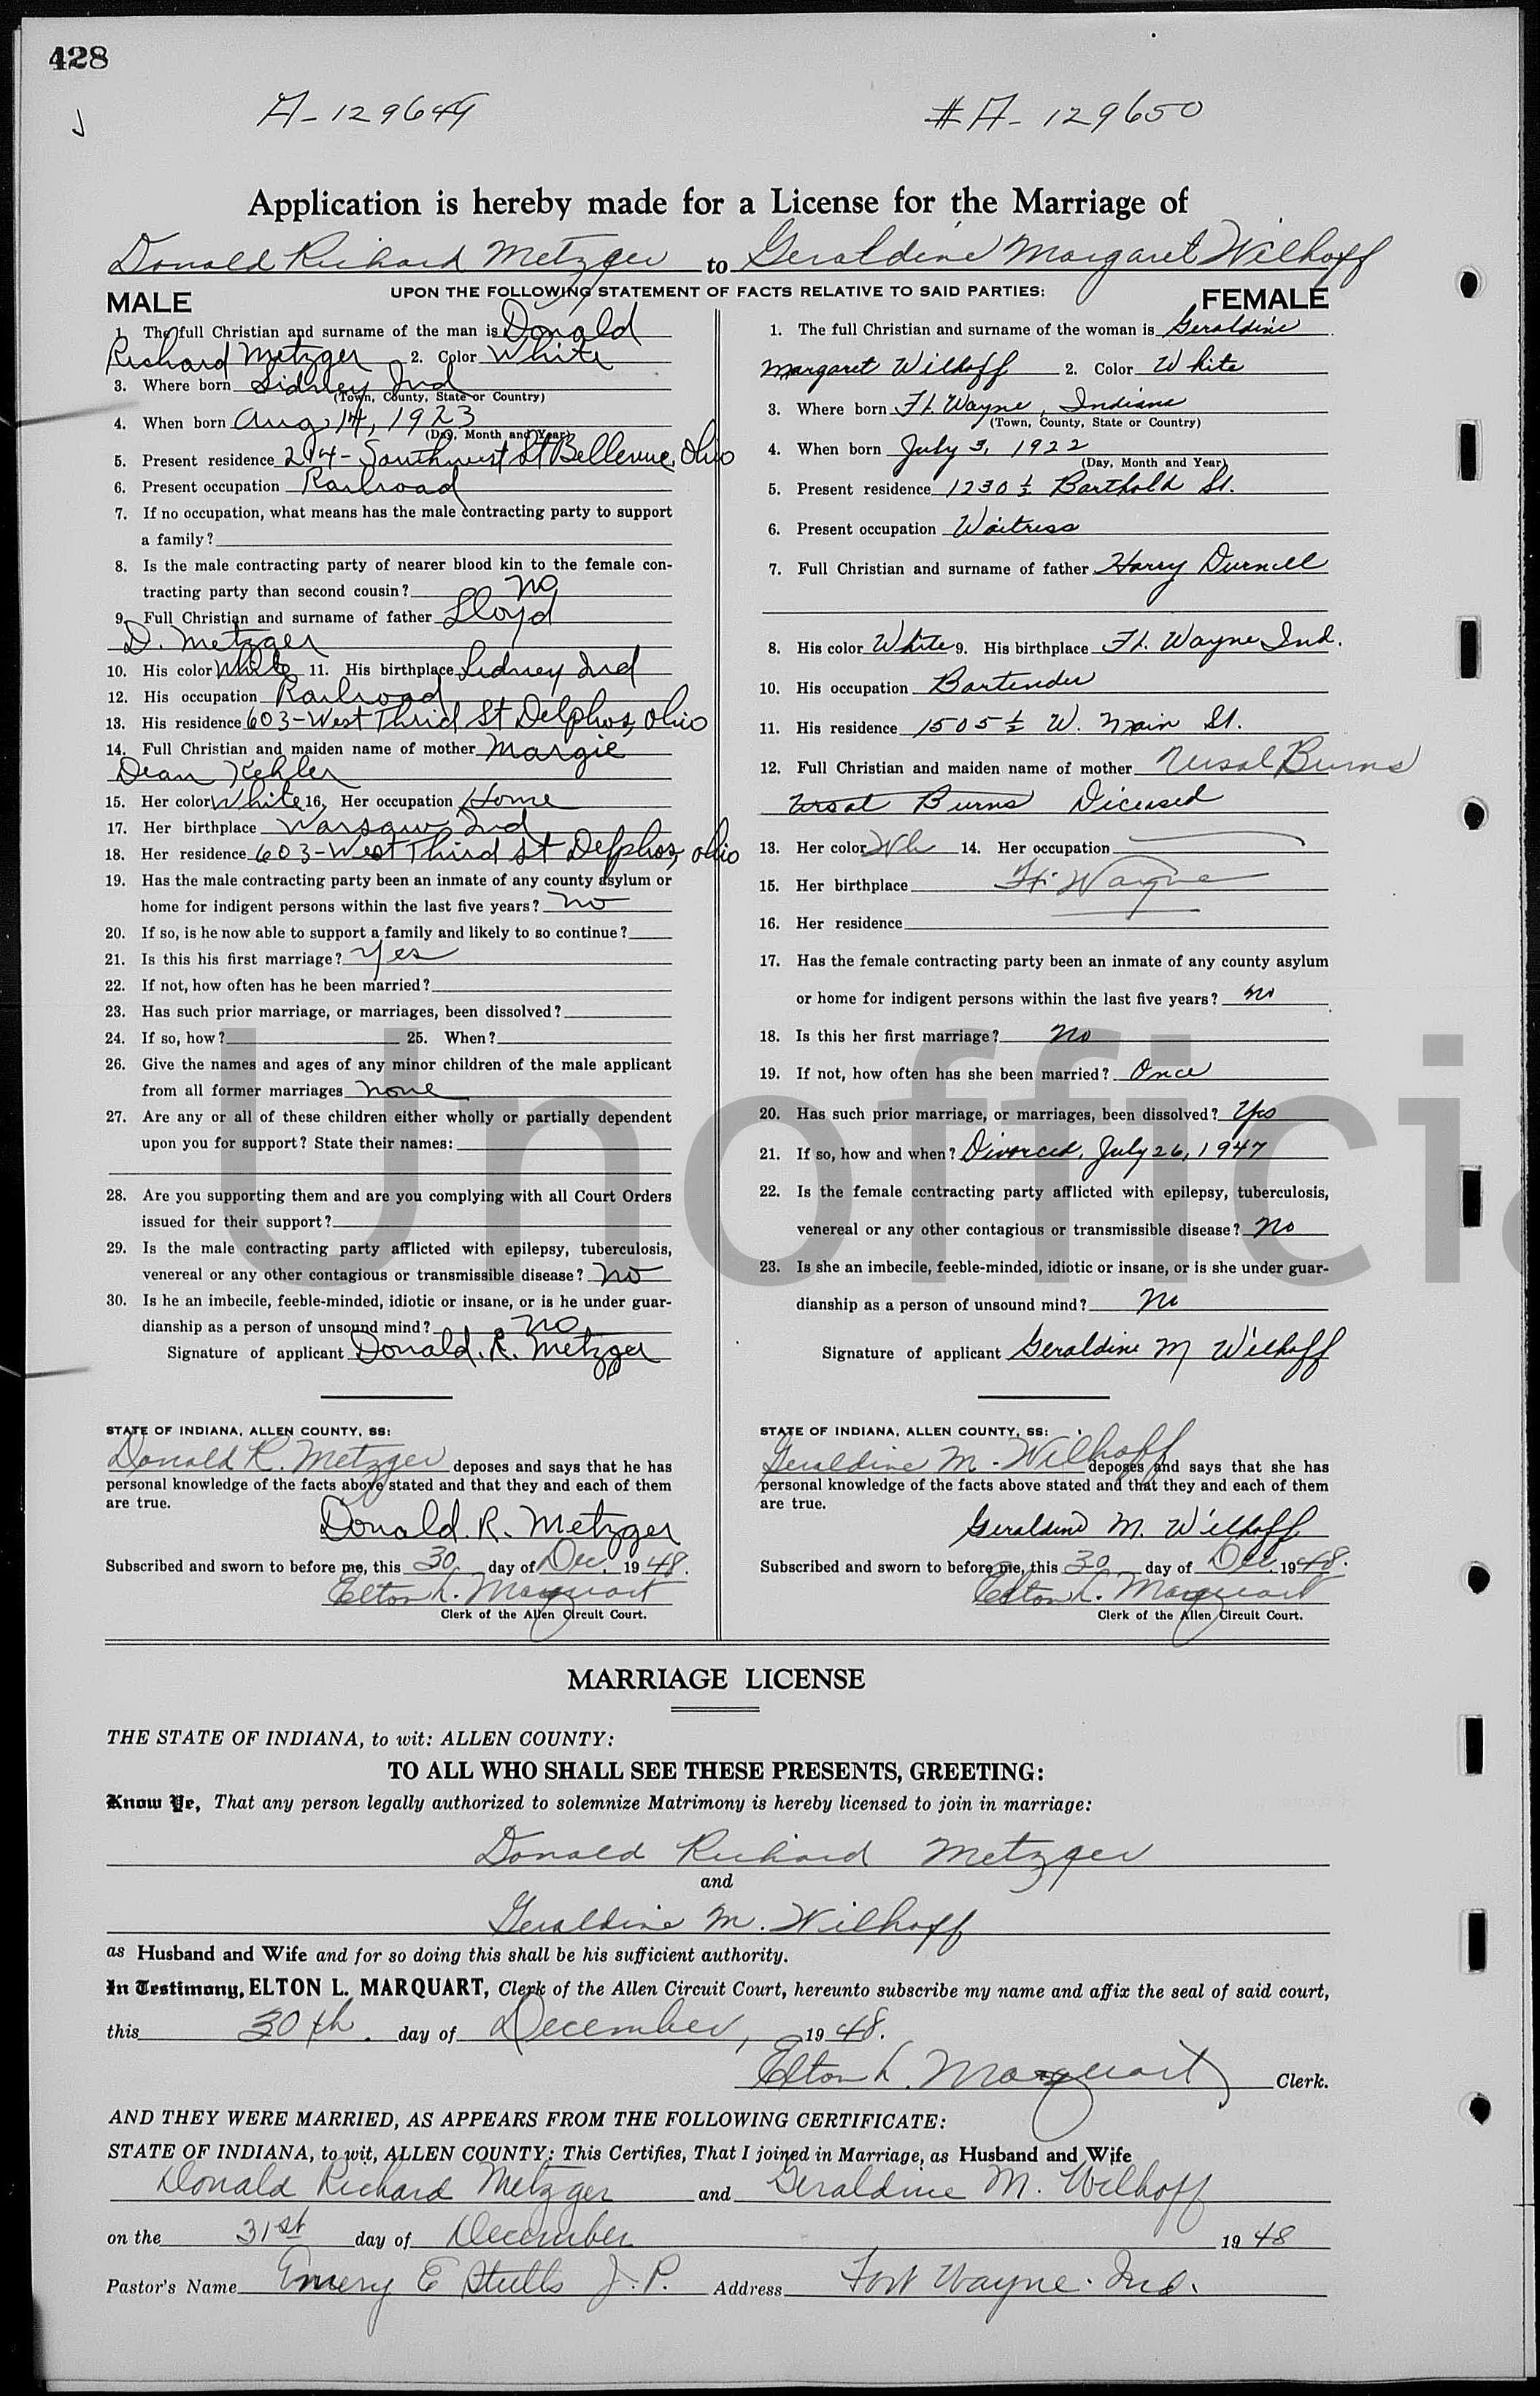 428
A-129649
#A-129650
Application is hereby made for a License for the Marriage of
Donald Richard Metzger to Geraldine Margaret Wilhoff
UPON THE FOLLOWING STATEMENT OF FACTS RELATIVE TO SAID PARTIES:
MALE
1. The full Christian and surname of the man is Donald
Richard Metzger 2. Color White
3. Where born Sidney Ind
(Town, County, State or Country)
4. When born Aug 14, 1923
(Day, Month and Year)
5. Present residence 214-Southwest St Bellevue, Ohio
6. Present occupation Railroad
7. If no occupation, what means has the male contracting party to support
a family?
8. Is the male contracting party of nearer blood kin to the female con-
tracting party than second cousin? no
9. Full Christian and surname of father Lloyd
D. Metzger
10. His color White 11. His birthplace Sidney Ind
12. His occupation Railroad
13. His residence 603-West Thrid St Delphos, Ohio
14. Full Christian and maiden name of mother Margie
Dean Kehler
15. Her color White 16. Her occupation Home
17. Her birthplace Warsaw, Ind
18. Her residence 603-West Third St Delphos, Ohio
19. Has the male contracting party been an inmate of any county asylum or
home for indigent persons within the last five years? no
20. If so, is he now able to support a family and likely to so continue?
21. Is this his first marriage? Yes
22. If not, how often has he been married?
23. Has such prior marriage, or marriages, been dissolved?
24. If so, how? 25. When?
26. Give the names and ages of any minor children of the male applicant
from all former marriages none
27. Are any or all of these children either wholly or partially dependent
upon you for support? State their names:
28. Are you supporting them and are you complying with all Court Orders
issued for their support?
29. Is the male contracting party afflicted with epilepsy, tuberculosis,
venereal or any other contagious or transmissible disease? no
30. Is he an imbecile, feeble-minded, idiotic or insane, or is he under guar-
dianship as a person of unsound mind? no
Signature of applicant Donald. R. Metzger
STATE OF INDIANA, ALLEN COUNTY, SS:
Donald R. Metzger deposes and says that he has
personal knowledge of the facts above stated and that they and each of them
are true.
Donald. R. Metzger
Subscribed and sworn to before me, this 30 day of Dec. 1948.
Elton L. Marquart
Clerk of the Allen Circuit Court.
FEMALE
1. The full Christian and surname of the woman is Geraldine
Margaret Wilhoff 2. Color White
3. Where born Ft. Wayne, Indiana
(Town, County, State or Country)
4. When born July 3, 1922
(Day, Month and Year)
5. Present residence 1230 1/2 Barthold St.
6. Present occupation Waitress
7. Full Christian and surname of father Harry Durnell
8. His color White 9. His birthplace Ft. Wayne Ind.
10. His occupation Bartender
11. His residence 1505 1/2 W. Main St.
12. Full Christian and maiden name of mother Ursal Burns
Ursal Burns Diceased
13. Her color Wh 14. Her occupation
15. Her birthplace Ft. Wayne
16. Her residence
17. Has the female contracting party been an inmate of any county asylum
or home for indigent persons within the last five years? no
18. Is this her first marriage? No
19. If not, how often has she been married? Once
20. Has such prior marriage, or marriages, been dissolved? Yes
21. If so, how and when? Divorced, July 26, 1947
22. Is the female contracting party afflicted with epilepsy, tuberculosis,
venereal or any other contagious or transmissible disease? No
23. Is she an imbecile, feeble-minded, idiotic or insane, or is she under guar-
dianship as a person of unsound mind? No
Signature of applicant Geraldine M Wilhoff
STATE OF INDIANA, ALLEN COUNTY, SS:
Geraldine M. Wilhoff deposes and says that she has
personal knowledge of the facts above stated and that they and each of them
are true.
Geraldine M. Wilhoff
Subscribed and sworn to before me, this 30 day of Dec. 1948.
Elton L. Marquart
Clerk of the Allen Circuit Court.
Unofficia
MARRIAGE LICENSE
THE STATE OF INDIANA, to wit: ALLEN COUNTY:
TO ALL WHO SHALL SEE THESE PRESENTS, GREETING:
Know Ye, That any person legally authorized to solemnize Matrimony is hereby licensed to join in marriage:
Donald Richard Metzger
and
Geraldine M. Wilhoff
as Husband and Wife and for so doing this shall be his sufficient authority.
In Testimony, ELTON L. MARQUART, Clerk of the Allen Circuit Court, hereunto subscribe my name and affix the seal of said court,
this 30th. day of December, 1948.
Elton L. Marquart Clerk.
AND THEY WERE MARRIED, AS APPEARS FROM THE FOLLOWING CERTIFICATE:
STATE OF INDIANA, to wit, ALLEN COUNTY: This Certifies, That I joined in Marriage, as Husband and Wife
Donald Richard Metzger and Geraldine M. Wilhoff
on the 31st day of December 1948
Pastor's Name Emery E Stults J.P. Address Fort Wayne. Ind.